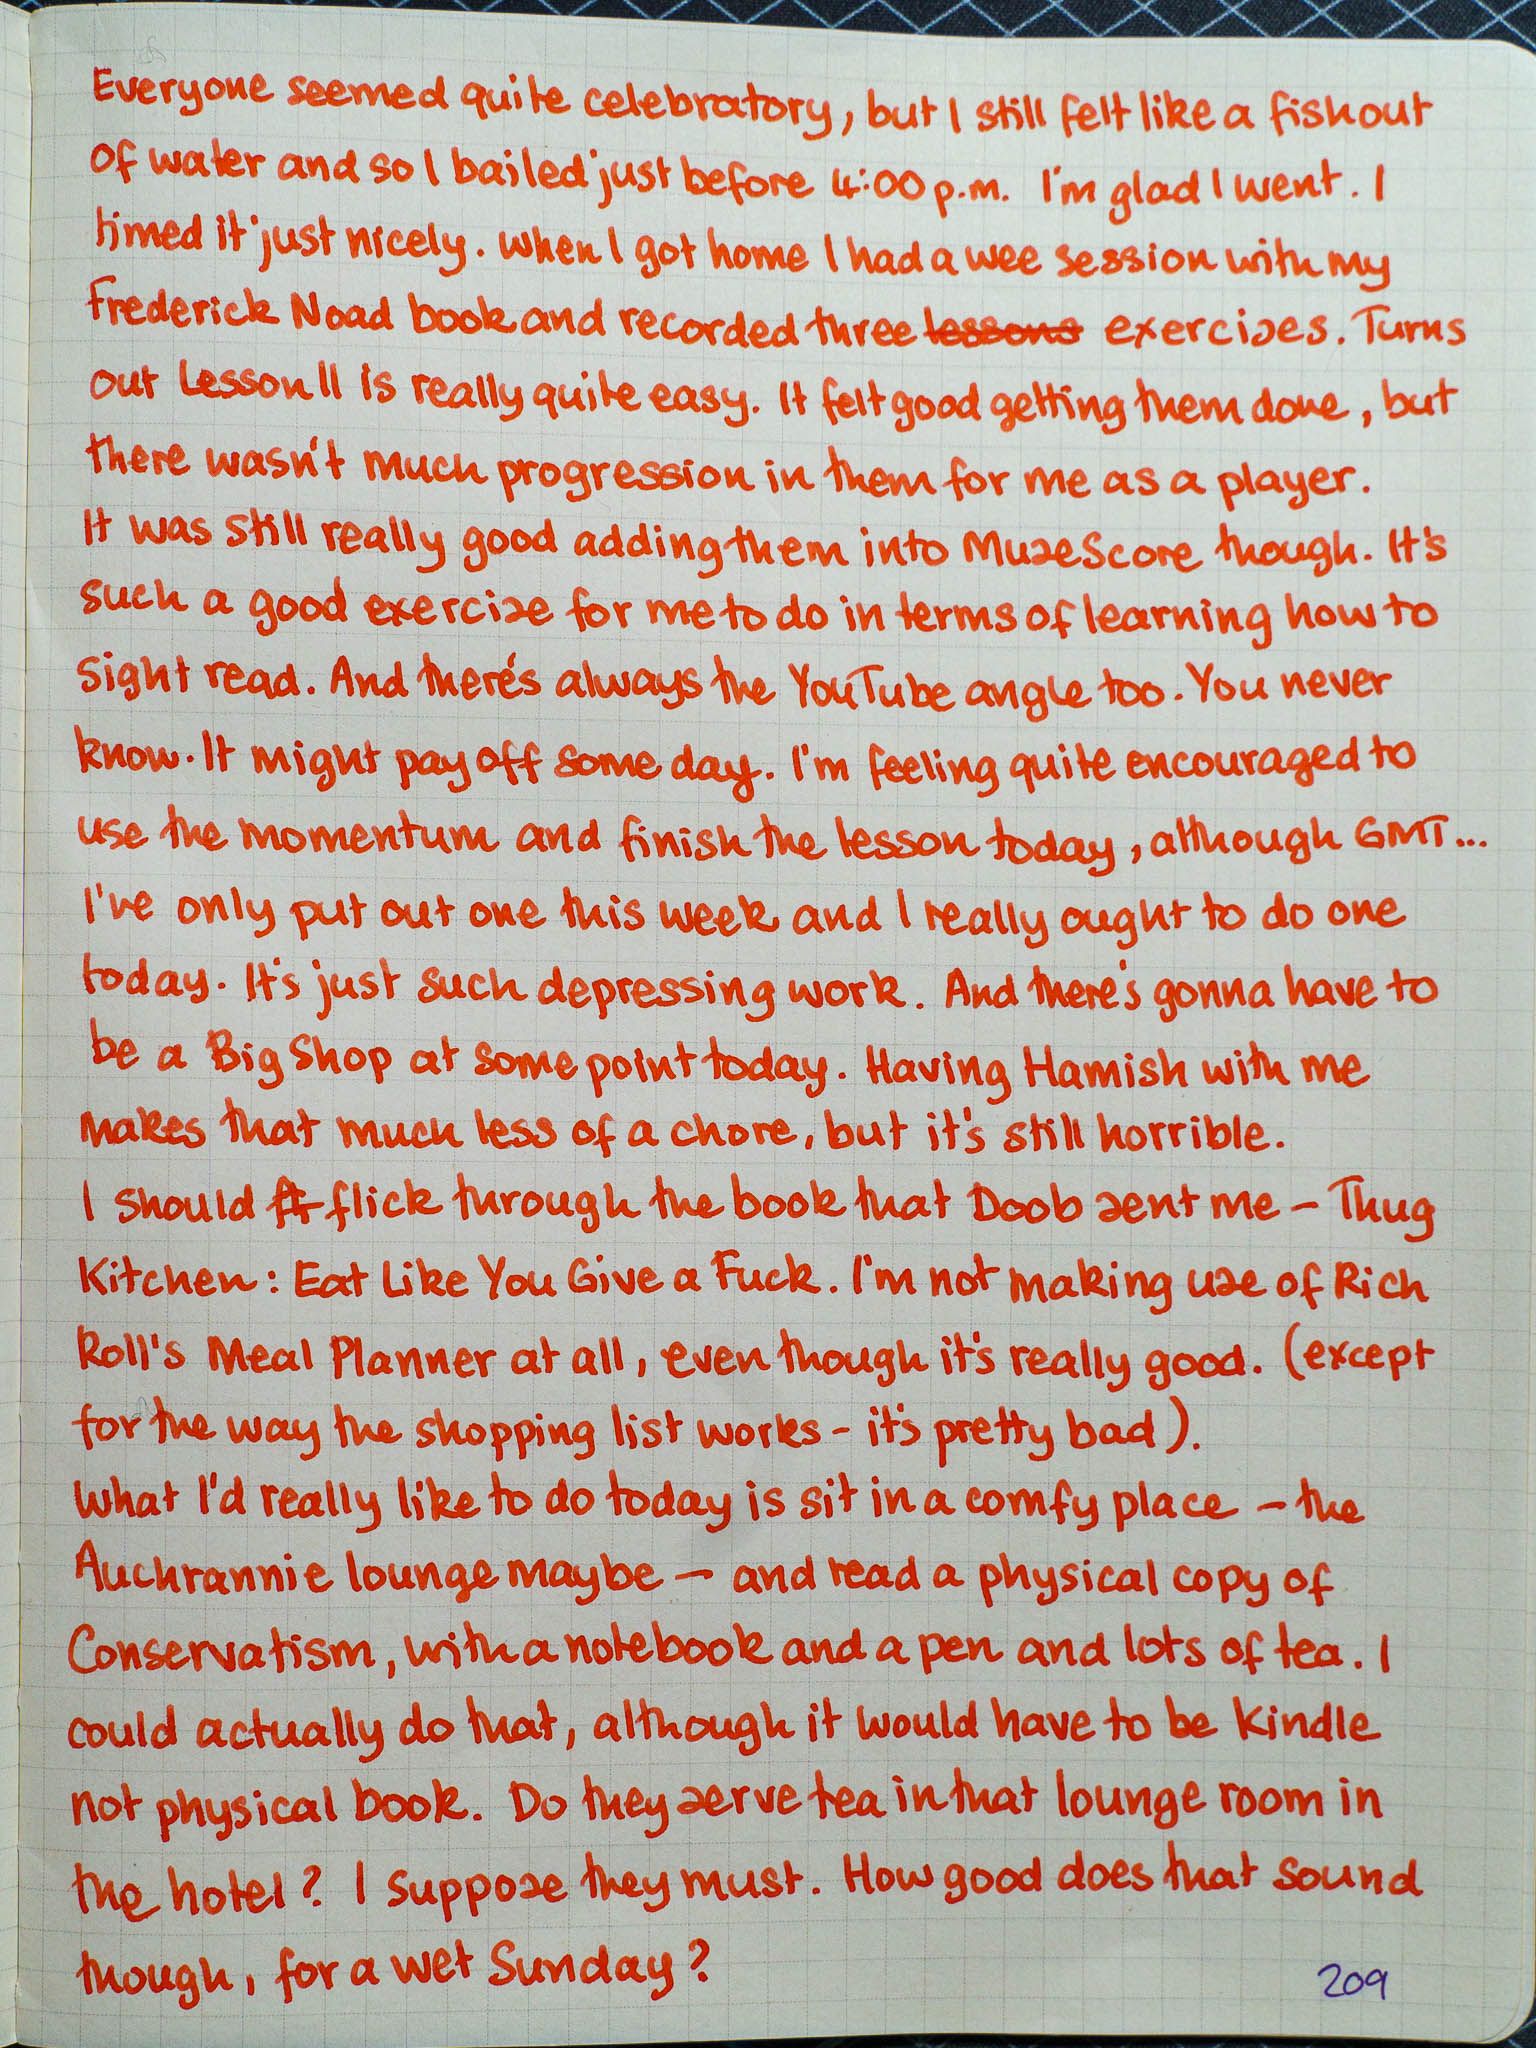 Everyone seemed quite celebratory, but I still felt like a fish out
of water and so I bailed just before 4:00 p.m. I'm glad I went. I
timed it just nicely. When I got home I had a wee session with my
Frederick Noad book and recorded three lessons exercises. Turns
out Lesson 11 is really quite easy. It felt good getting them done, but
there wasn't much progression in them for me as a player.
It was still really good adding them into MuseScore though. It's
such a good exercise for me to do in terms of learning how to
sight read. And there's always the YouTube angle too. You never
know. It might pay off some day. I'm feeling quite encouraged to
use the momentum and finish the lesson today, although GMT...
I've only put out one this week and I really ought to do one
today. It's just such depressing work. And there's gonna have to
be a Big Shop at some point today. Having Hamish with me
makes that much less of a chore, but it's still horrible.
I should flick through the book that Doob sent me – Thug
Kitchen: Eat Like You Give a Fuck. I'm not making use of Rich
Roll's Meal Planner at all, even though it's really good. (except
for the way the shopping list works - it's pretty bad).
What I'd really like to do today is sit in a comfy place – the
Auchrannie lounge maybe – and read a physical copy of
Conservatism, with a notebook and a pen and lots of tea. I
could actually do that, although it would have to be Kindle
not physical book. Do they serve tea in that lounge room in
the hotel? I suppose they must. How good does that sound
though, for a wet Sunday?
209